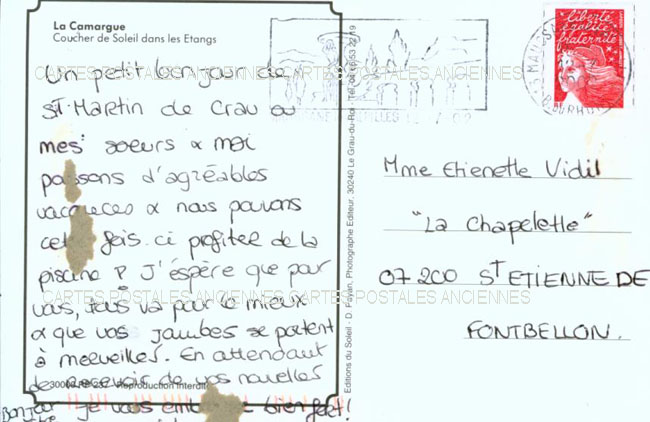 La Camargue
Coucher de Soleil dans les Etangs
Un petit bonjour de
St. Martin de Crau ou
mes soeurs & moi
passons d'agréables
vacances & nous pouvons
cette fois. ci profiter de la
piscine ? J'espère que pour
vous, tous va pour le mieux
& que vos jambes se portent
à merveilles. En attendant
de recevoir de vos nouvelles
je vous embrasse bien fort!
Bonjour
Editions du Soleil - D. Fayein, Photographe Editeur, 30240 Le Grau-du-Roi
Reproduction interdite
liberté
égalité
fraternité
Mme Etienette Vidil
"La Chapelette"
07 200 ST ETIENNE DE
FONTBELLON.
CARTES POSTALES ANCIENNES CARTES POSTALES ANCIENNES
CARTES POSTALES ANCIENNES CARTES POSTALES ANCIENNES